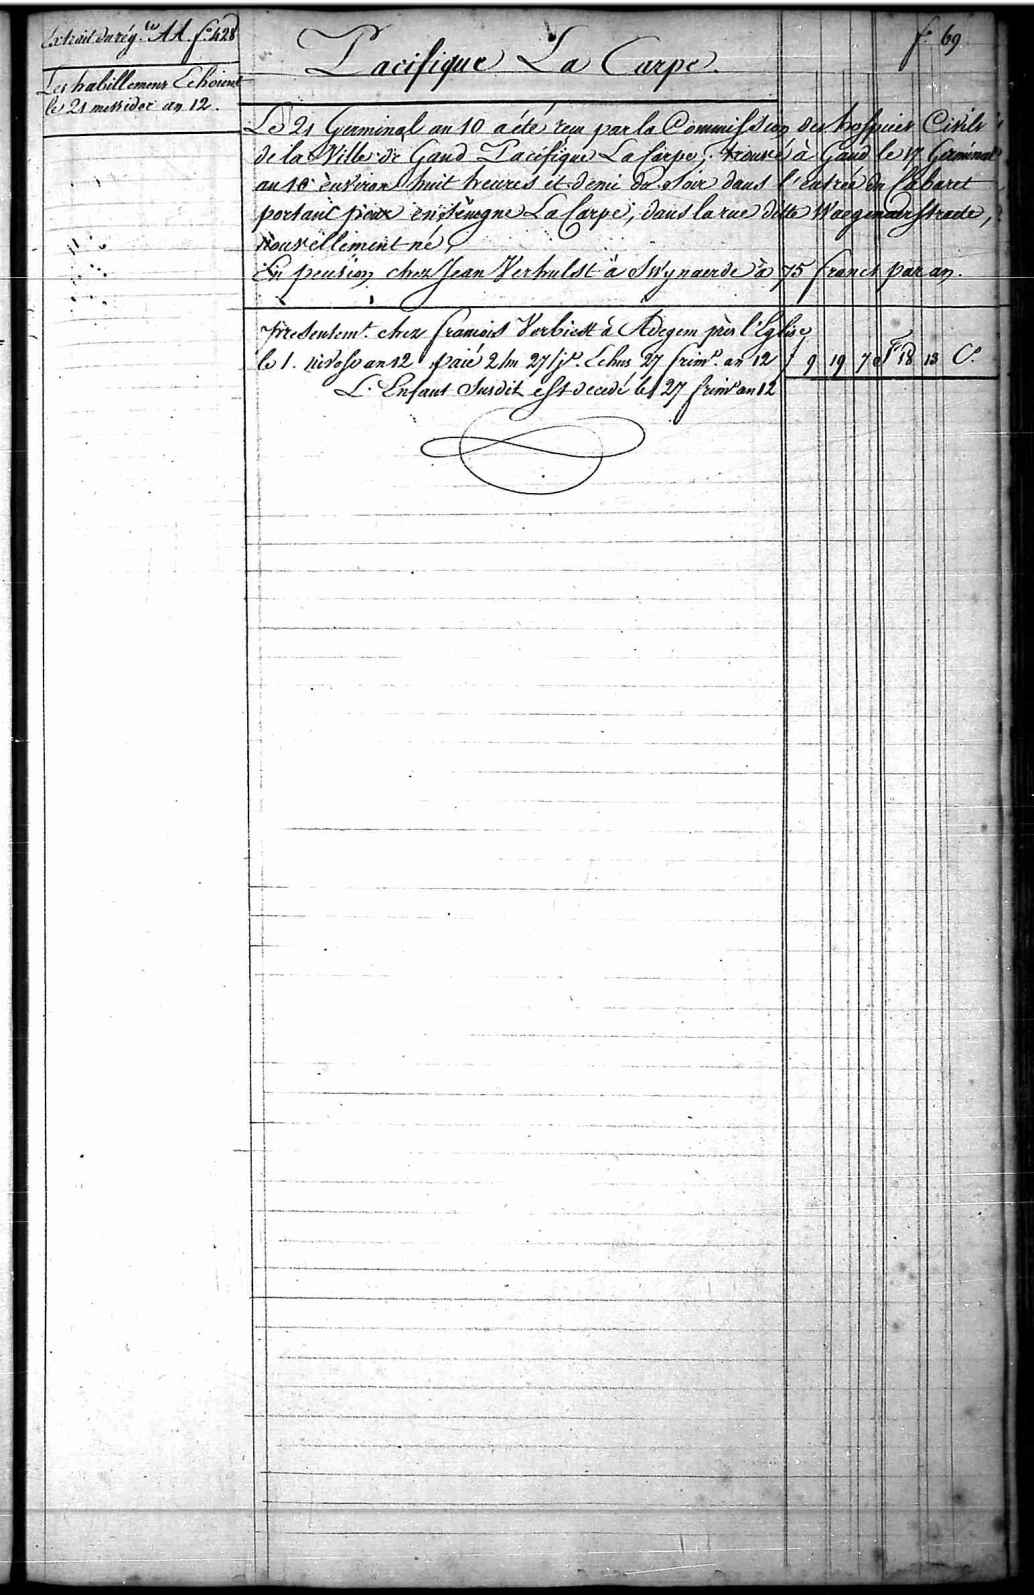 Extrait du rég.re AA. f.o 428
f. 69
Pacifique La Carpe.
Les habillemens Echoient
le 21 messidor an 12.
Le 21 Germinal an 10 a été reçu par la Commission des hospices Civils
de la Ville de Gand Pacifique La Carpe, trouvé à Gand le 17 Germinal
an 10 environ huit heures et demi du Soir dans l'entrée du Cabaret
portant pour enseigne La Carpe, dans la rue dite Waegenaerstrade,
nouvellement né,
En pension chez Jean Verhulst à Swynaerde à 75 francs par an.
Presentem.t chez francois Verbiest à Adegem près l'Eglise
le 1. nivose an 12 paié 2 m 27 j.rs Echus 27 frim.e an 12 9 19 7 18 13 C.s
L'Enfant Susdit est decedé le 27 frim.e an 12